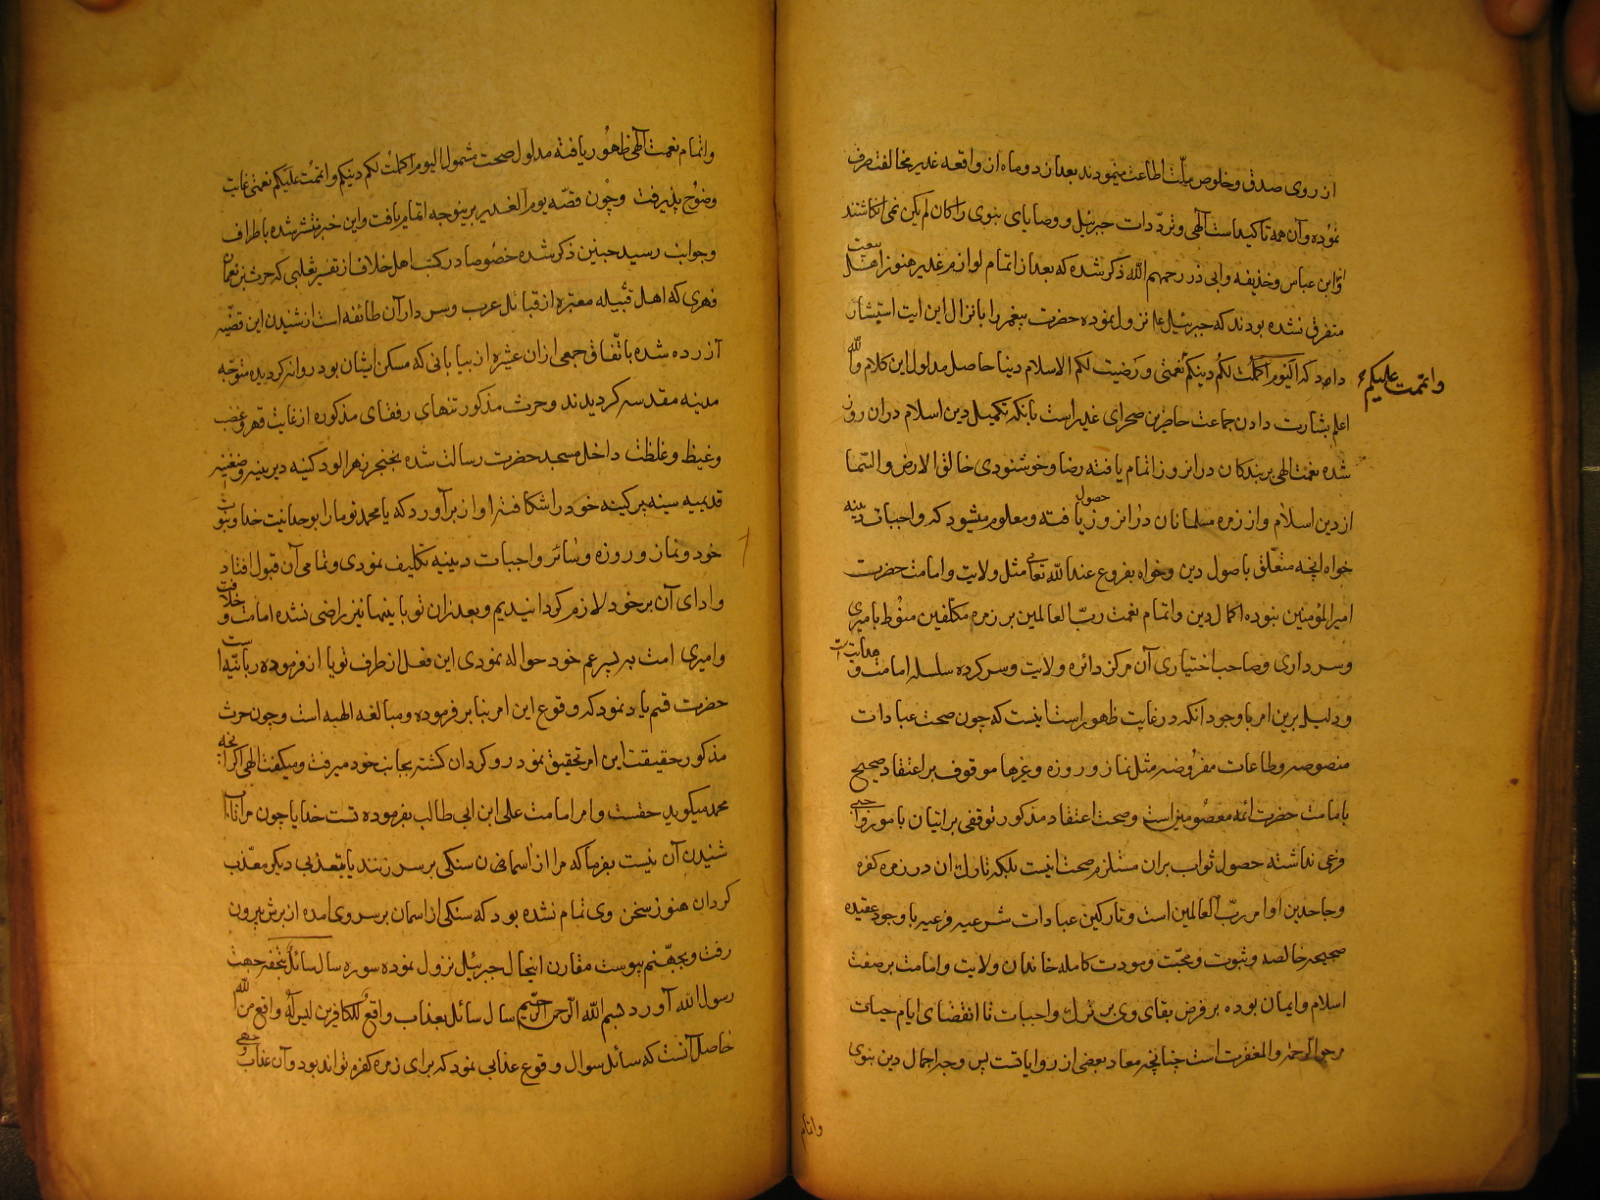 از روی صدق و خلوص ملت اطاعت مینمودند بعد از دو ماه از واقعه غدیر مخالفت صرف
نموده و آن همه تاکیدات الهی و تردّدات جبرئیل و وصایای بنوی را کان لم یکن می انکاشتند
و ابن عباس و حذیفه و ابی ذر رحمهم الله ذکر شده که بعد از اتمام لوازم غدیر هنوز اهل بیعت
متفرق نشده بودند که جبرئیل ع نزول نموده حضرت پیغمبر را بانزال این ایت استبشار
داد که الیوم اکملت لکم دینکم نعمتی و رضیت لکم الاسلام دینا حاصل مدلول این کلام والله
واتممت علیکم
اعلم بشارت دادن جماعت حاضرین صحرای غدیر است بانکه تکمیل دین اسلام دران روز
شده نعمت الهی بر بندکان در انروز اتمام یافته رضا و خوشنودی خالق الارض والسّما
از دین اسلام و از زمره مسلمانان در انروز حصول یافته و معلوم میشود که واجبات دینیه
خواه انچه متعلّق باصول دین و خواه بفروع عند الله تعالی مثل ولایت و امامت حضرت
امیر المؤمنین بنوده اکمال دین و اتمام نعمت ربّ العالمین بر زمره مکلّفین منوط بامیری
و سرداری و صاحب اختیاری آن مرکز دائره ولایت و سرکرده سلسله امامت و هدایت است
و دلیل برین امر با وجود انکه در غایت ظهور است اینست که چون صحت عبادات
منصوصه و طاعات مفروضه مثل نماز و روزه و غیرها موقوف بر اعتقاد صحیح
بامامت حضرت ائمه معصومین است و صحت اعتقاد مذکور توقفی بر اتیان بامور واجبی
فرعی نداشته حصول ثواب بران مستلزم صحت انیست بلکه تارک ان در زمره کفره
و جاحدین اوامر ربّ العالمین است و تارکین عبادات شرعیه فرعیه با وجود عقیده
صحیحه خالصه و ثبوت و محبّت و مودت کامله خاندان ولایت و امامت بر صفت
اسلام و ایمان بوده بر فرض بقای وی بر ترک واجبات تا انقضای ایام حیات
مرجو الرحمة والمغفرت است چنانچه معاد بعضی از روایاتست پس وجه اجمال دین بنوی
واتمام
واتمام نعمت الهی ظهور یافته مدلول صحت شمول الیوم اکملت لکم دینکم واتممت علیکم نعمتی غایت
وضوح پذیرفت و چون قصّه یوم الغدیر برینوجه اتمام یافت و این خبر منتشر شده باطراف
و جوانب رسید چنین ذکر شده خصوصا در کتب اهل خلاف از تفسیر ثعلبی که حرث بن نعمان
فهری که اهل قبیله معتبره از قبائل عرب و سردار آن طائفه است از شنیدن این قضیّه
آزرده شده باتّفاق جمعی ازان عشیره از بیابانی که مسکن ایشان بود روانه کردیده متوجّه
مدینه مقدسه کردیدند و حرث مذکور تنهای رفقای مذکوره از غایت قهر و غضب
و غیظ و غلظت داخل مسجد حضرت رسالت شده بخنجر زهر الود کینه دیرینه و ضغینه
قدیمیه سینه پر کینه خود را شکافته اواز برآورد که یا محمد تو ما را بوحدانیت خدا و نبوت
خود و نماز و روزه و سائر واجبات دینیه تکلیف نمودی و تمامی آن قبول افتاد
و ادای آن بر خود لازم کردانیدیم و بعد ازان تو باینها نیز راضی نشده امامت و خلافت
و امیری امت به پسر عم خود حواله نمودی این فعل از طرف تو یا از فرموده ربانیّه است
حضرت قسم یاد نمود که وقوع این امر بنا بر فرموده و مبالغه الهیه است و چون حرث
مذکور حقیقت این امر تحقیق نمود رو کردان کشته بجانب خود میرفت و میکفت الهی اکر انچه
محمد میکوید حقست و امر امامت علی ابن ابی طالب بفرموده تست خدایا چون مرا تاب
شنیدن آن نیست بفرما که مرا از اسمان سنکی بر سر زنند یا بتعذیب دیکر معذّب
کردان هنوز سخن وی تمام نشده بود که سنکی از اسمان بر سر وی امده از برش بیرون
رفت و بجهنّم پیوست مقارن اینحال جبرئیل نزول نموده سوره سال سائل بتحفه جهت
رسول الله آورد بسم الله الرحمن الرحیم سال سائل بعذاب واقع للکافرین لیس له واقع من الله
حاصل آنست که سائل سوال و وقوع عذابی نمود که برای زمره کفره تواند بود و آن عذاب